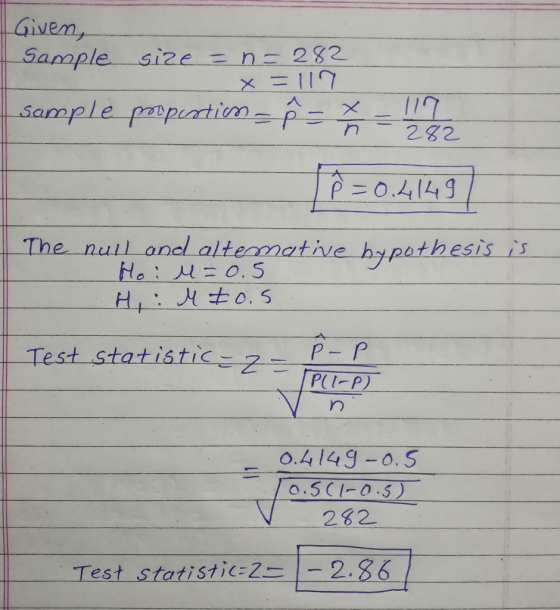 Given,
Sample size = n = 282
x = 117
Sample proportion = p̂ = x/n = 117/282
p̂ = 0.4149
The null and alternative hypothesis is
H₀ : μ = 0.5
H₁ : μ ≠ 0.5
Test statistic = Z = (p̂ - P)/√(P(1-P)/n)
= (0.4149 - 0.5)/√(0.5(1-0.5)/282)
Test statistic = Z = -2.86